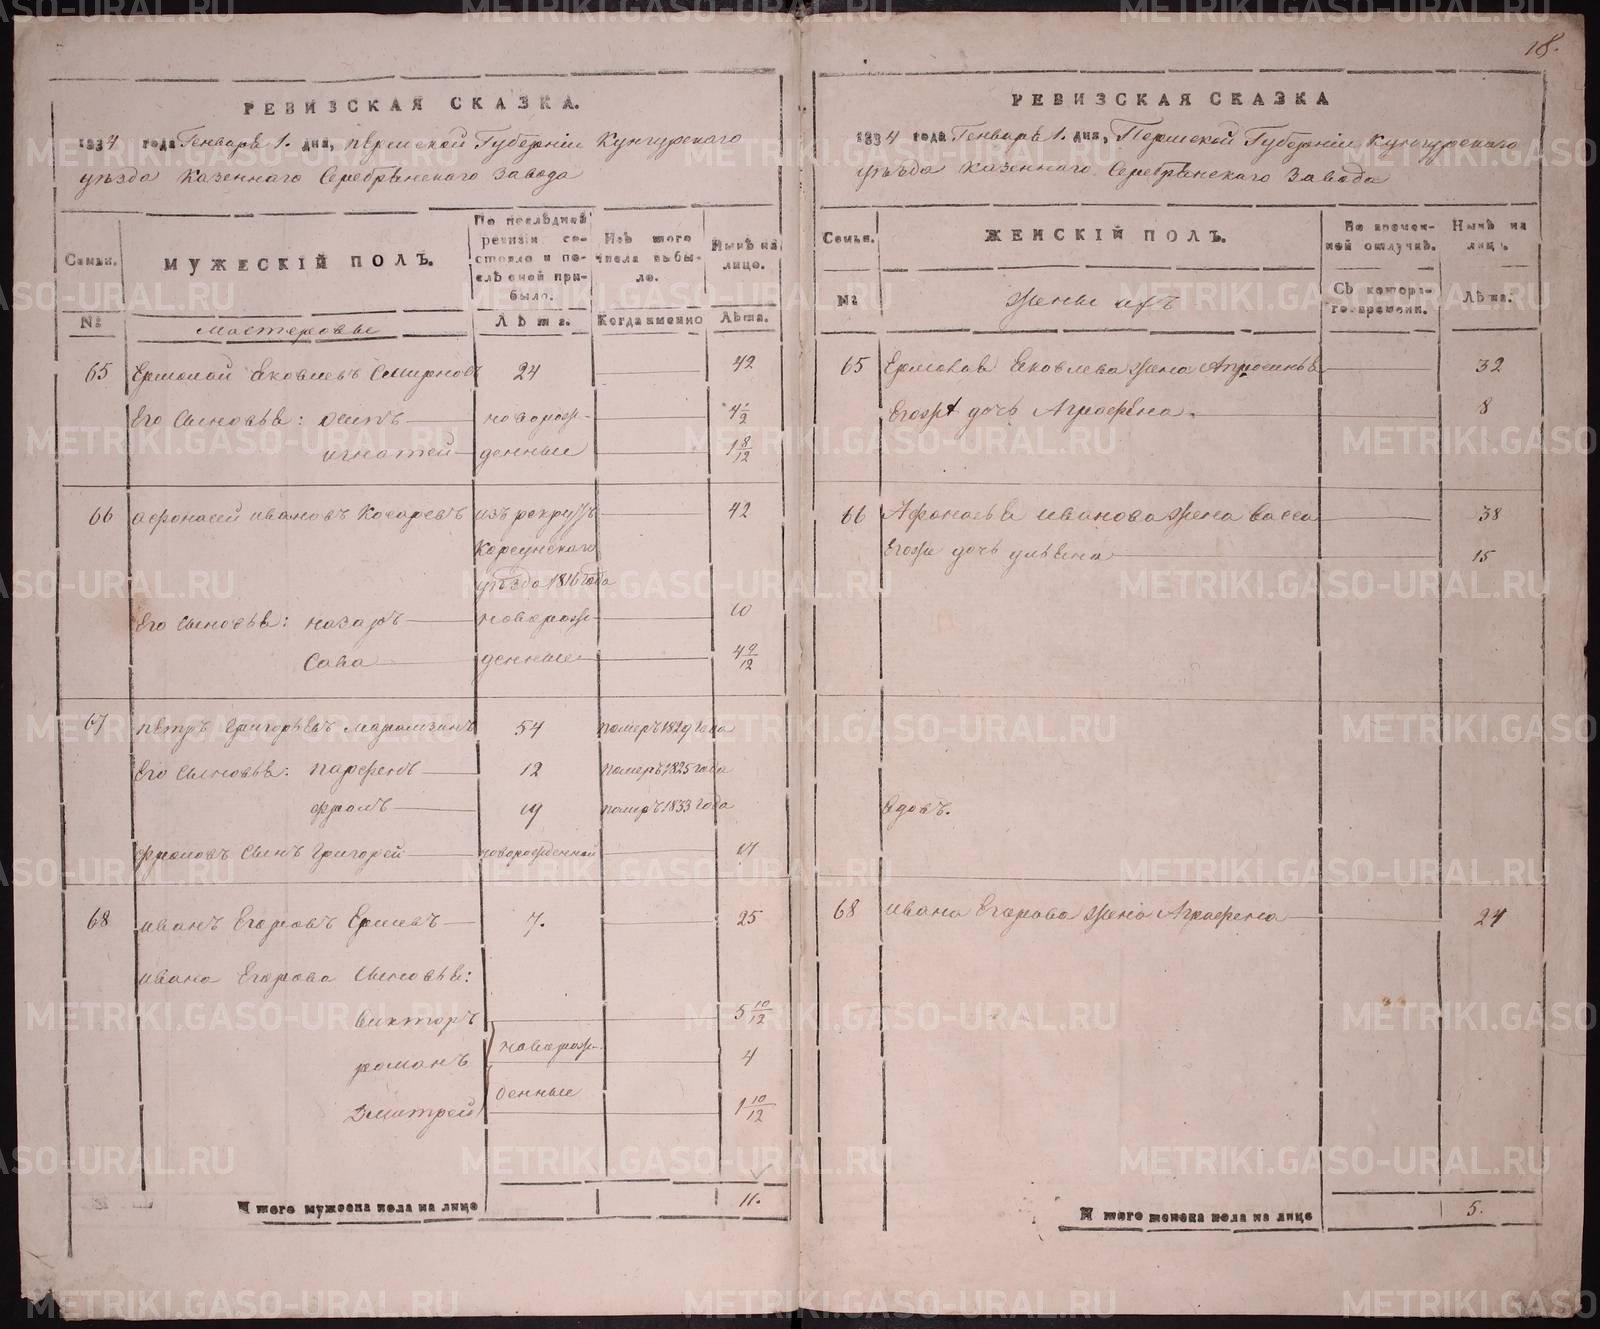 18.
РЕВИЗСКАЯ СКАЗКА.
1834 года Генваря 1. дня, Пермской Губернiи Кунгурского
уѣзда Казенного Серебрянского Завода
Семьи. МУЖЕСКIЙ ПОЛЪ. По послѣдней ревизiи состояло и послѣ оной прибыло. Изъ того числа выбыло. Нынѣ на лице.
№ Мастеровые Лѣта. Когда именно Лѣта.
65 Ермолай Яковлевъ Смирновъ 24 42
Его Сыновья: Осипъ новорож- 4 1/2
Игнатей денные 1 8/12
66 Афонасей Ивановъ Косаревъ изъ рекрутъ 42
Корсунскаго
уѣзда 1816 года
Его Сыновья: Назаръ новорож- 10
Сава денные 4 9/12
67 Петръ Григорьевъ 54 померъ 1829 года
Его Сыновья: Парфенъ 12 померъ 1825 года
Фролъ 19 померъ 1833 года
Фроловъ Сынъ Григорей новорожденной
68 Иванъ Егоровъ 7. 25
Ивана Егорова Сыновья:
Викторъ 5 10/12
Романъ новорож- 4
Дмитрей денные 1 10/12
Итого мужеска пола на лице 11.
РЕВИЗСКАЯ СКАЗКА
1834 года Генваря 1. дня, Пермской Губернiи Кунгурского
уѣзда Казенного Серебрянского Завода
Семьи. ЖЕНСКIЙ ПОЛЪ. Во временной отлучкѣ. Нынѣ на лицѣ.
№ Жены ихъ Съ котораго времени. Лѣта.
65 Ермолая Яковлева жена Апросинья 32
Егожъ дочь Агрофена. 8
66 Афонасья Иванова жена Васса 38
Егожъ дочь Ульяна 15
Вдовъ.
68 Ивана Егорова жена Аграфена 24
Итого женска пола на лице 5.
METRIKI.GASO-URAL.RU